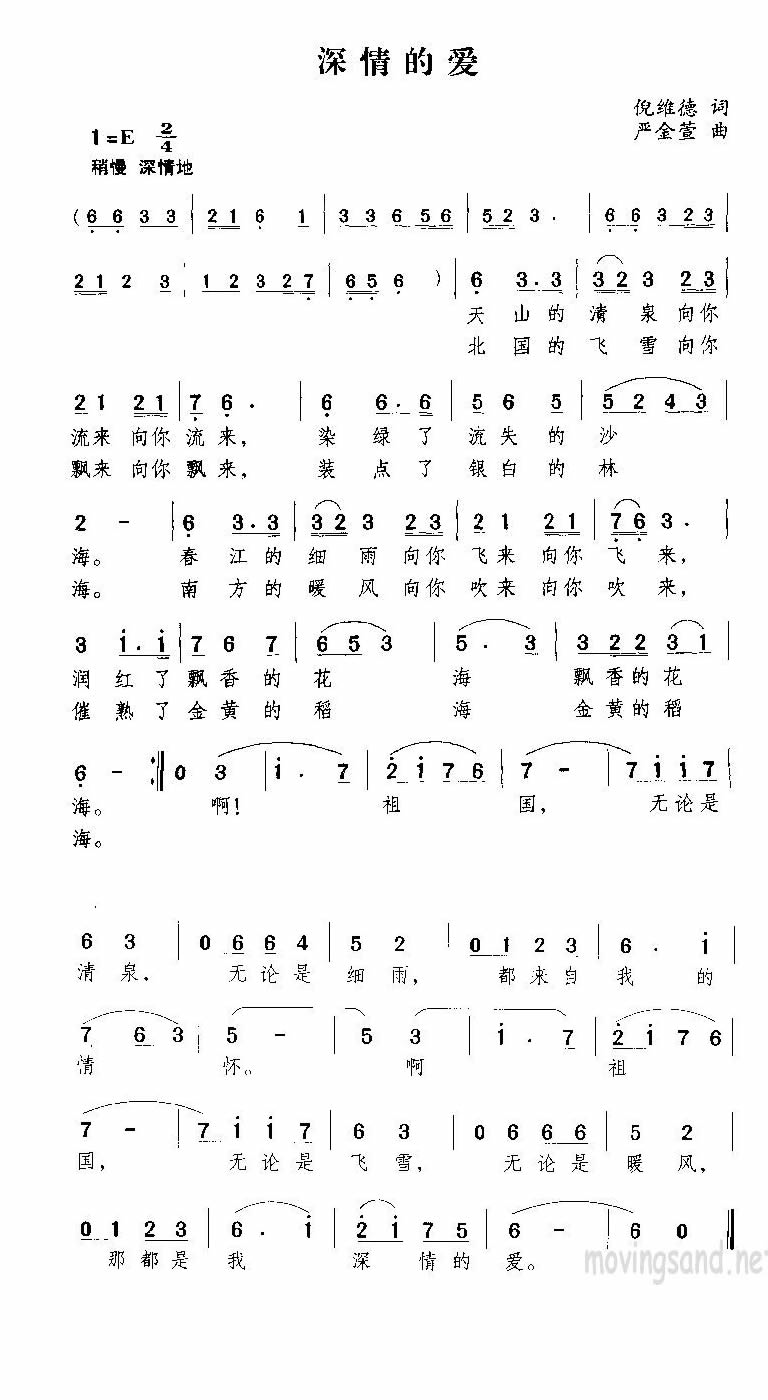 深情的爱
倪维德 词
1=E 2/4
严金萱 曲
稍慢 深情地
(6 6 3 3 | 2 1 6 1 | 3 3 6 5 6 | 5 2 3 . | 6 6 3 2 3 |
2 1 2 3 | 1 2 3 2 7 | 6 5 6 ) | 6 3.3 | 3 2 3 2 3 |
天山的清泉向你
北国的飞雪向你
2 1 2 1 | 7 6 . | 6 6.6 | 5 6 5 | 5 2 4 3 |
流来 向你 流来, 染绿了 流失的沙
飘来 向你 飘来, 装点了 银白的林
2 - | 6 3.3 | 3 2 3 2 3 | 2 1 2 1 | 7 6 3 . |
海。 春江的细雨向你飞来向你飞来,
海。 南方的暖风向你吹来向你吹来,
3 i.i | 7 6 7 | 6 5 3 | 5 . 3 | 3 2 2 3 1 |
润红了飘香的花 海 飘香的花
催熟了金黄的稻 海 金黄的稻
6 - :| 0 3 | i . 7 | 2 i 7 6 | 7 - | 7 i i 7 |
海。 啊! 祖 国, 无论是
海。
6 3 | 0 6 6 4 | 5 2 | 0 1 2 3 | 6 . i |
清泉, 无论是细雨, 都来自我的
7 6 3 | 5 - | 5 3 | i . 7 | 2 i 7 6 |
情 怀。 啊 祖
7 - | 7 i i 7 | 6 3 | 0 6 6 6 | 5 2 |
国, 无论是飞雪, 无论是暖风,
0 1 2 3 | 6 . i | 2 i 7 5 | 6 - | 6 0 ‖
那都是我 深 情的爱。
movingsand.net